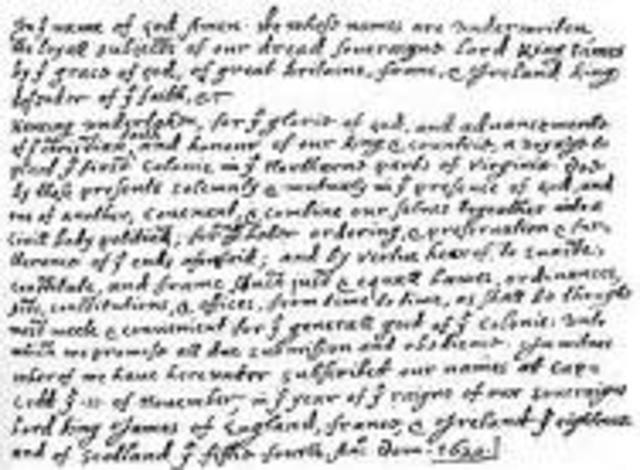 In yͤ name of god Amen. We whose names are underwriten,
the loyall subjects of our dread soveraigne Lord King James
by yͤ grace of god, of great Britaine, franc, & Ireland king
defender of yͤ faith, &c
Haveing undertaken, for yͤ glorie of god, and advancemente
of yͤ christian faith and honour of our king & countrie, a voyage to
plant yͤ first colonie in yͤ Northerne parts of Virginia. doe
by these presents solemnly & mutualy in yͤ presence of god, and
one of another, covenant, & combine our selves togeather into a
Civill body politick; for our better ordering, & preservation & fur-
therance of yͤ ends aforesaid; and by vertue hearof, to enacte,
constitute, and frame shuch just & equall Lawes, ordinances,
Acts, constitutions, & offices, from time to time, as shall be thought
most meete & convenient for yͤ generall good of yͤ colonie: unto
which we promise all due submission and obedience. In witnes
wherof we have hereunder subscribed our names at Cap-
Codd yͤ 11 of November, in yͤ year of yͤ raigne of our soveraigne
Lord king James of England, france, & Ireland yͤ eighteene
and of Scotland yͤ fiftie fourth. Ano Dom. 1620.